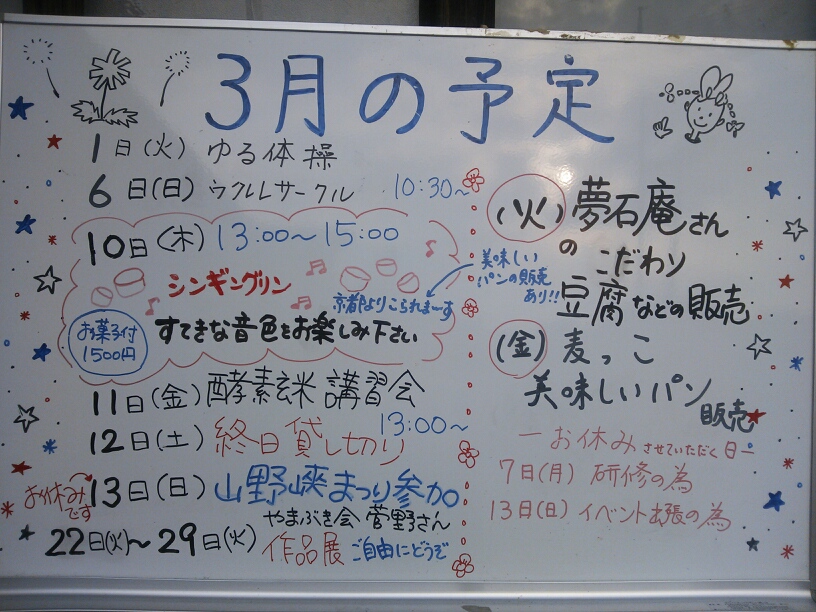 3月の予定
1日(火) ゆる体操
6日(日) ウクレレサークル 10:30~
10日(木) 13:00~15:00
シンギングリン
京都よりこられまーす
美味しい
パンの販売
あり!!
お菓子付
1500円
すてきな音色をお楽しみ下さい
11日(金) 酵素玄米講習会
13:00~
12日(土) 終日貸し切り
お休みです
13日(日) 山野峡まつり参加
やまぶき会 菅野さん
22日(火)~29日(火) 作品展 ご自由にどうぞ
(火) 夢石庵さん
のこだわり
豆腐などの販売
(金) 麦っこ
美味しいパン
販売
ーお休みさせていただく日ー
7日(月) 研修の為
13日(日) イベント出張の為